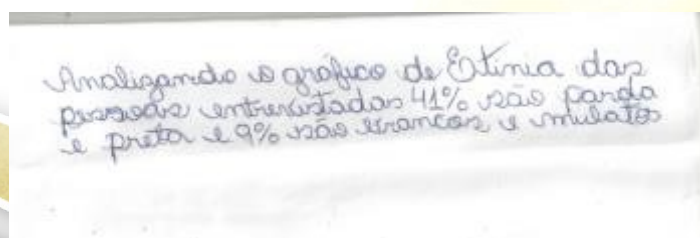 Analizando o gráfico de Etinia das
pessoas entrevistadas 41% são parda
e preta e 9% são brancas e mulatos